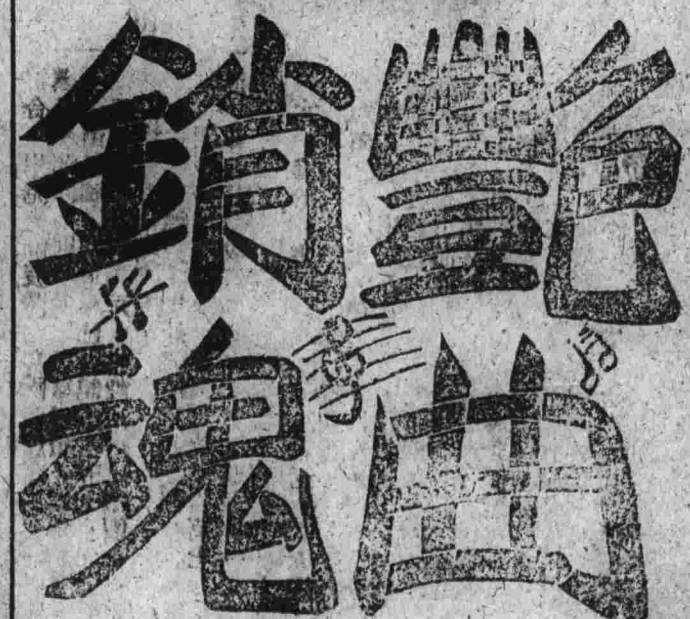 艷曲
銷魂